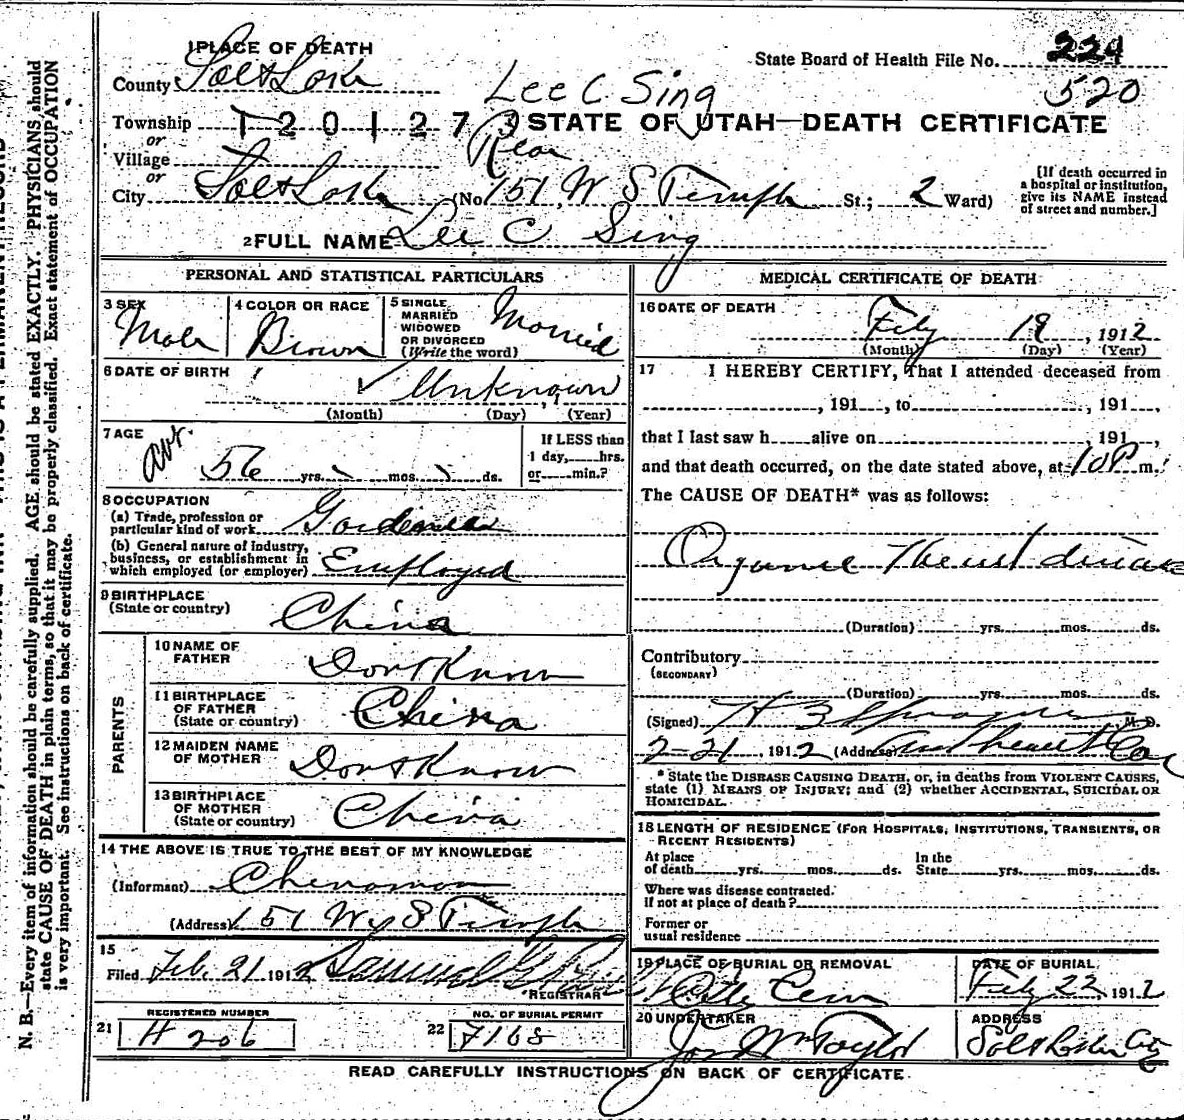 1 PLACE OF DEATH
State Board of Health File No. 224
County Salt Lake
520
Lee C. Sing
Township 1201273 STATE OF UTAH—DEATH CERTIFICATE
or
Village
Rear
or
City Salt Lake (No. 151 W S Temple St.; 2 Ward)
[If death occurred in
a hospital or institution,
give its NAME instead
of street and number.]
2 FULL NAME Lee C Sing
PERSONAL AND STATISTICAL PARTICULARS
3 SEX
Male
4 COLOR OR RACE
Brown
5 SINGLE
MARRIED
WIDOWED
OR DIVORCED
(Write the word)
Married
6 DATE OF BIRTH
Unknown
(Month) (Day) (Year)
7 AGE
56 yrs. mos. ds.
If LESS than
1 day, hrs.
or min.?
8 OCCUPATION
(a) Trade, profession or
particular kind of work Gardener
(b) General nature of industry,
business, or establishment in
which employed (or employer) Employed
9 BIRTHPLACE
(State or country) China
PARENTS
10 NAME OF
FATHER Dont Know
11 BIRTHPLACE
OF FATHER
(State or country) China
12 MAIDEN NAME
OF MOTHER Dont Know
13 BIRTHPLACE
OF MOTHER
(State or country) China
14 THE ABOVE IS TRUE TO THE BEST OF MY KNOWLEDGE
(Informant) Chinaman
(Address) 151 W S Temple
15
Filed Feb. 21 1912 Samuel G
REGISTRAR
REGISTERED NUMBER
21 H 206
NO. OF BURIAL PERMIT
22 7168
MEDICAL CERTIFICATE OF DEATH
16 DATE OF DEATH
Feby 19, 1912
(Month) (Day) (Year)
17 I HEREBY CERTIFY, That I attended deceased from
, 191 , to , 191 ,
that I last saw h alive on , 191 ,
and that death occurred, on the date stated above, at 10 P m.
The CAUSE OF DEATH* was as follows:
Organic Heart disease
(Duration) yrs. mos. ds.
Contributory
(SECONDARY)
(Duration) yrs. mos. ds.
(Signed) H B Sprague M. D.
2-21, 1912 (Address)
* State the DISEASE CAUSING DEATH, or, in deaths from VIOLENT CAUSES,
state (1) MEANS OF INJURY; and (2) whether ACCIDENTAL, SUICIDAL OR
HOMICIDAL.
18 LENGTH OF RESIDENCE (FOR HOSPITALS, INSTITUTIONS, TRANSIENTS, OR
RECENT RESIDENTS)
At place
of death yrs. mos. ds.
In the
State yrs. mos. ds.
Where was disease contracted.
If not at place of death?
Former or
usual residence
19 PLACE OF BURIAL OR REMOVAL
City Cem
DATE OF BURIAL
Feby 22, 1912
20 UNDERTAKER
Jos Wm Taylor
ADDRESS
Salt Lake City
READ CAREFULLY INSTRUCTIONS ON BACK OF CERTIFICATE.
N. B.—Every item of information should be carefully supplied. AGE should be stated EXACTLY. PHYSICIANS should
state CAUSE OF DEATH in plain terms, so that it may be properly classified. Exact statement of OCCUPATION
is very important. See instructions on back of certificate.